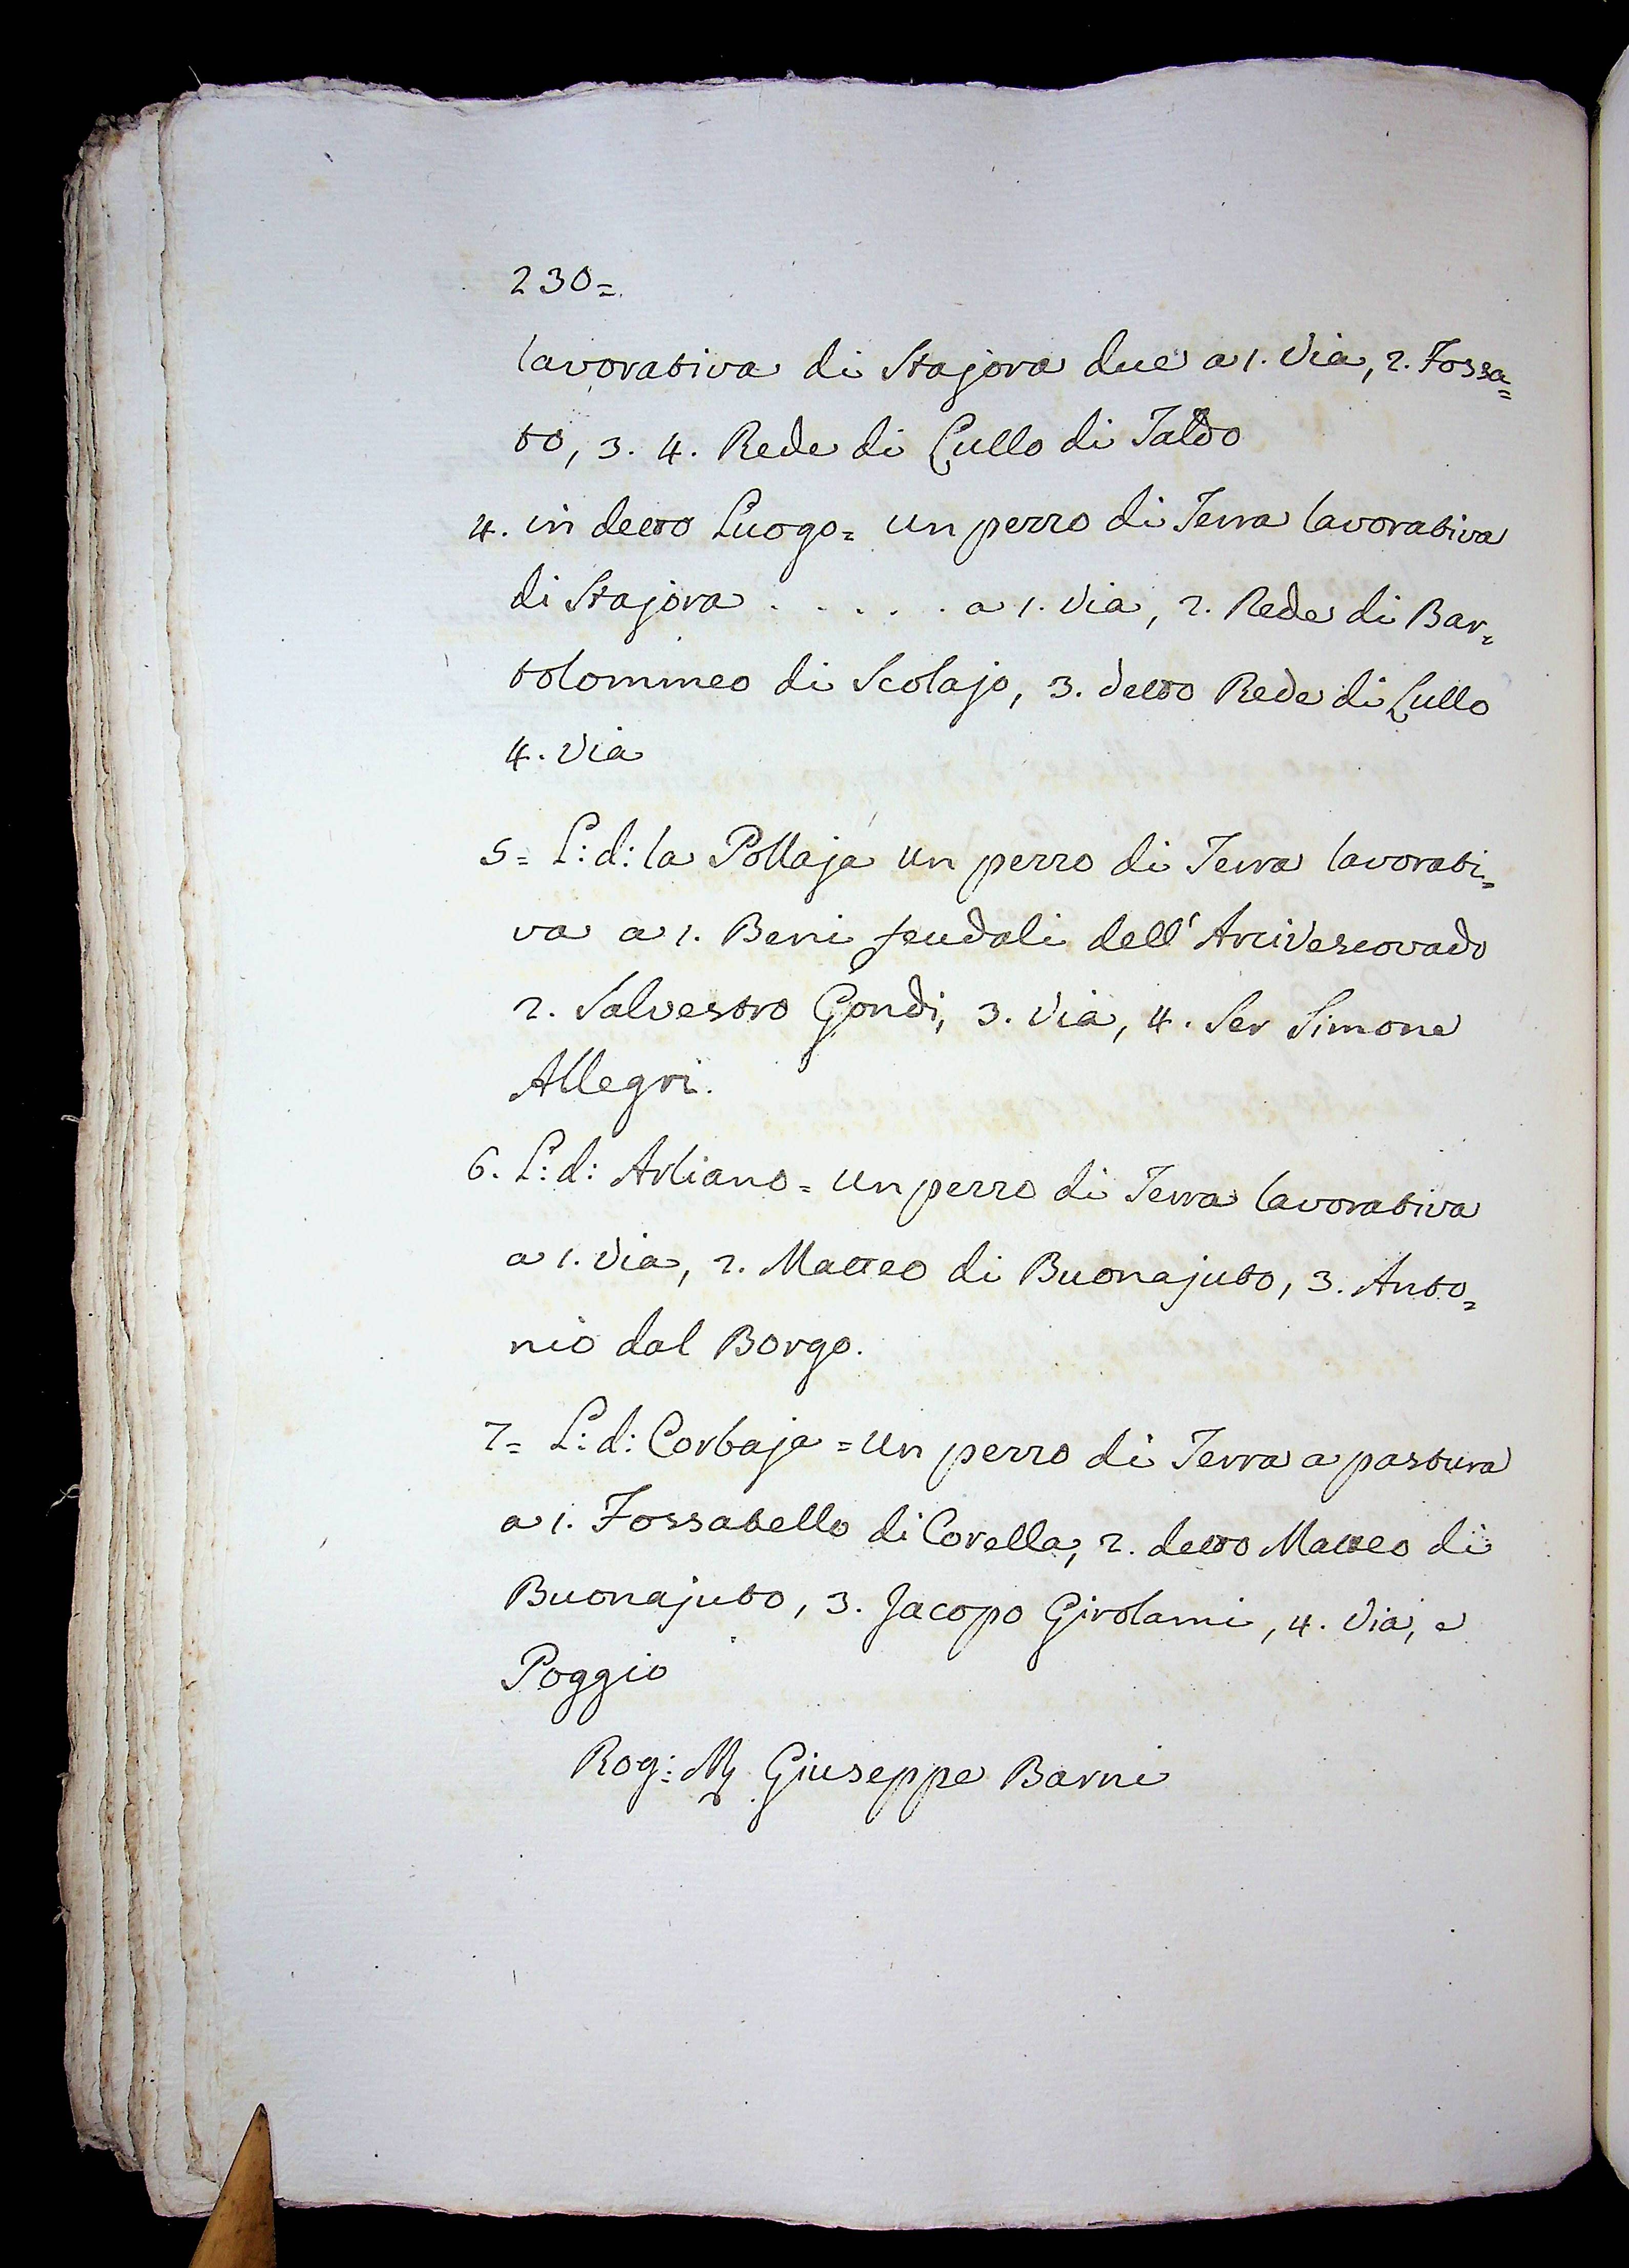 230=
lavorativa di Stajora due a 1. Via, 2. Fossa=
to, 3. 4. Rede di Lullo di Taldo
4. in detto Luogo= un pezzo di Terra lavorativa
di Stajora . . . . . . a 1. Via, 2. Rede di Bar=
tolommeo di Scolajo, 3. detto Rede di Lullo
4. Via
5= L: d: la Pollaja un pezzo di Terra lavorati=
va a 1. Beni feudali dell' Arcivescovado
2. Salvestro Gondi, 3. Via, 4. Ser Simone
Allegri.
6. L: d: Arliano= un pezzo di Terra lavorativa
a 1. Via, 2. Matteo di Buonajuto, 3. Anto=
nio dal Borgo.
7= L: d: Corbaja= un pezzo di Terra a pastura
a 1. Fossatello di Corella, 2. detto Matteo di
Buonajuto, 3. Jacopo Girolami, 4. Via, e
Poggio
Rog: Giuseppe Barni